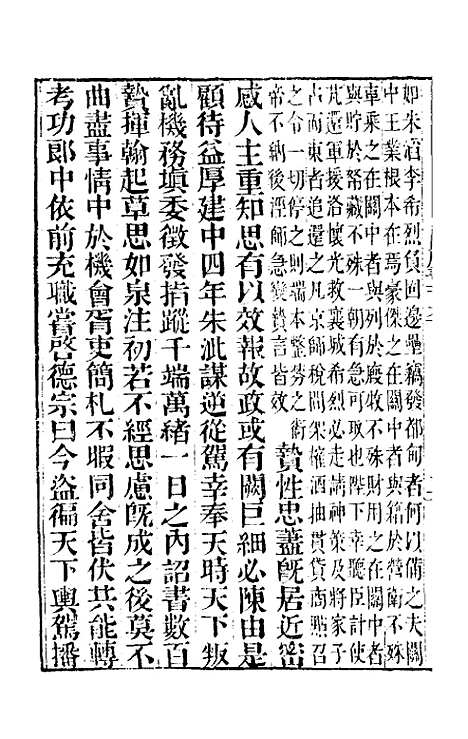 如朱滔李希烈負固邊壘竊發都甸者何以備之夫關
中王業根本在焉豪傑之在關中者與籍於營衛不殊
車乘之在關中者與列於廄牧不殊財用之在關中者
與貯於帑藏不殊一朝有急可取也陛下幸聽臣計使
芃還軍援洛懷光救襄城希烈必走請神策及將家子
占而東者追還之凡京師稅間架榷酒抽貫貸商點召
之令一切停之則端本整棼之術
帝不納後涇師急變贄言皆效
贄性忠藎既居近密
感人主重知思有以效報故政或有闕巨細必陳由是
顧待益厚建中四年朱泚謀逆從駕幸奉天時天下叛
亂機務填委徵發指蹤千端萬緒一日之內詔書數百
贄揮翰起草思如泉注初若不經思慮既成之後莫不
曲盡事情中於機會胥吏簡札不暇同舍皆伏其能轉
考功郎中依前充職嘗啓德宗曰今盜徧天下輿駕播